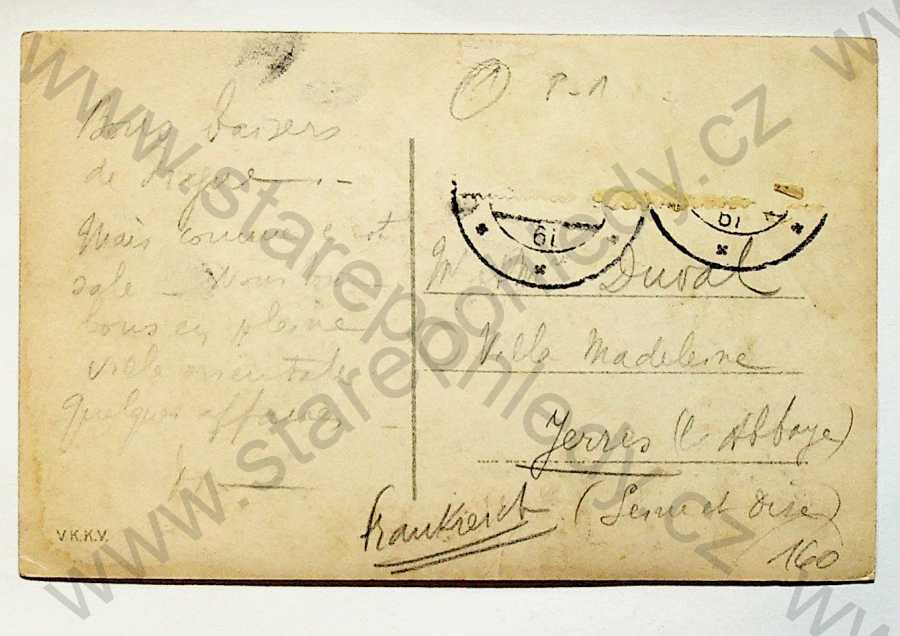 P-1
Bons baisers
de
Mais comme c'est
sale - Nous
en pleine
ville orientale
Quelques affaires
V.K.K.V.
19
19
M. Mme Duval
Villa Madeleine
Yerres (l'Abbaye)
(Seine et Oise)
Frankreich
160
www.starepohledy.cz
www.starepohledy.cz